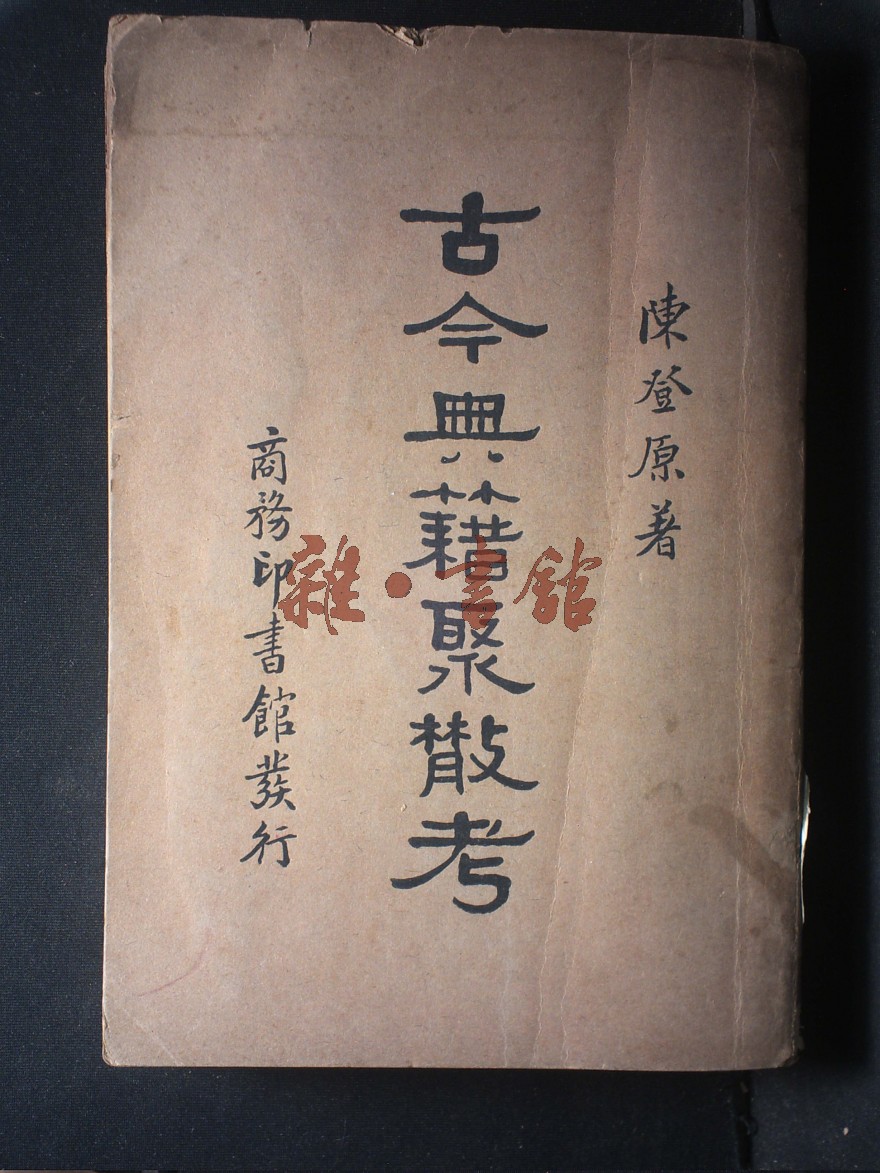 陳登原著
古今典籍聚散考
商務印書館發行
雜·書館